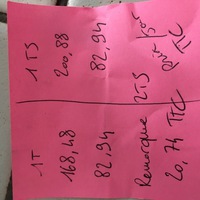 1T
168,48
82,94
Remorque
20,74 TTC
1TS
200,88
82,94
2TS
Prix /
TTC